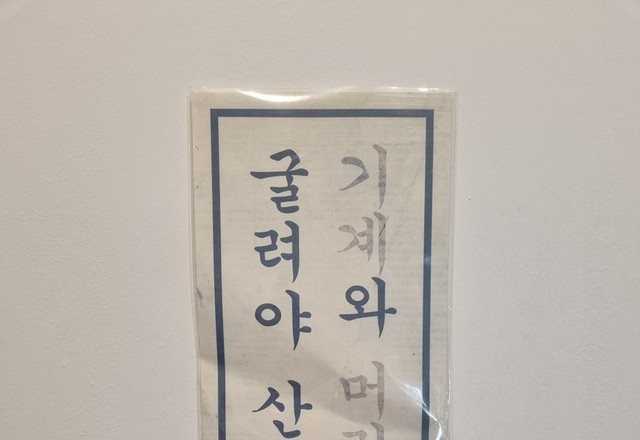 기계와 머
굴려야 산